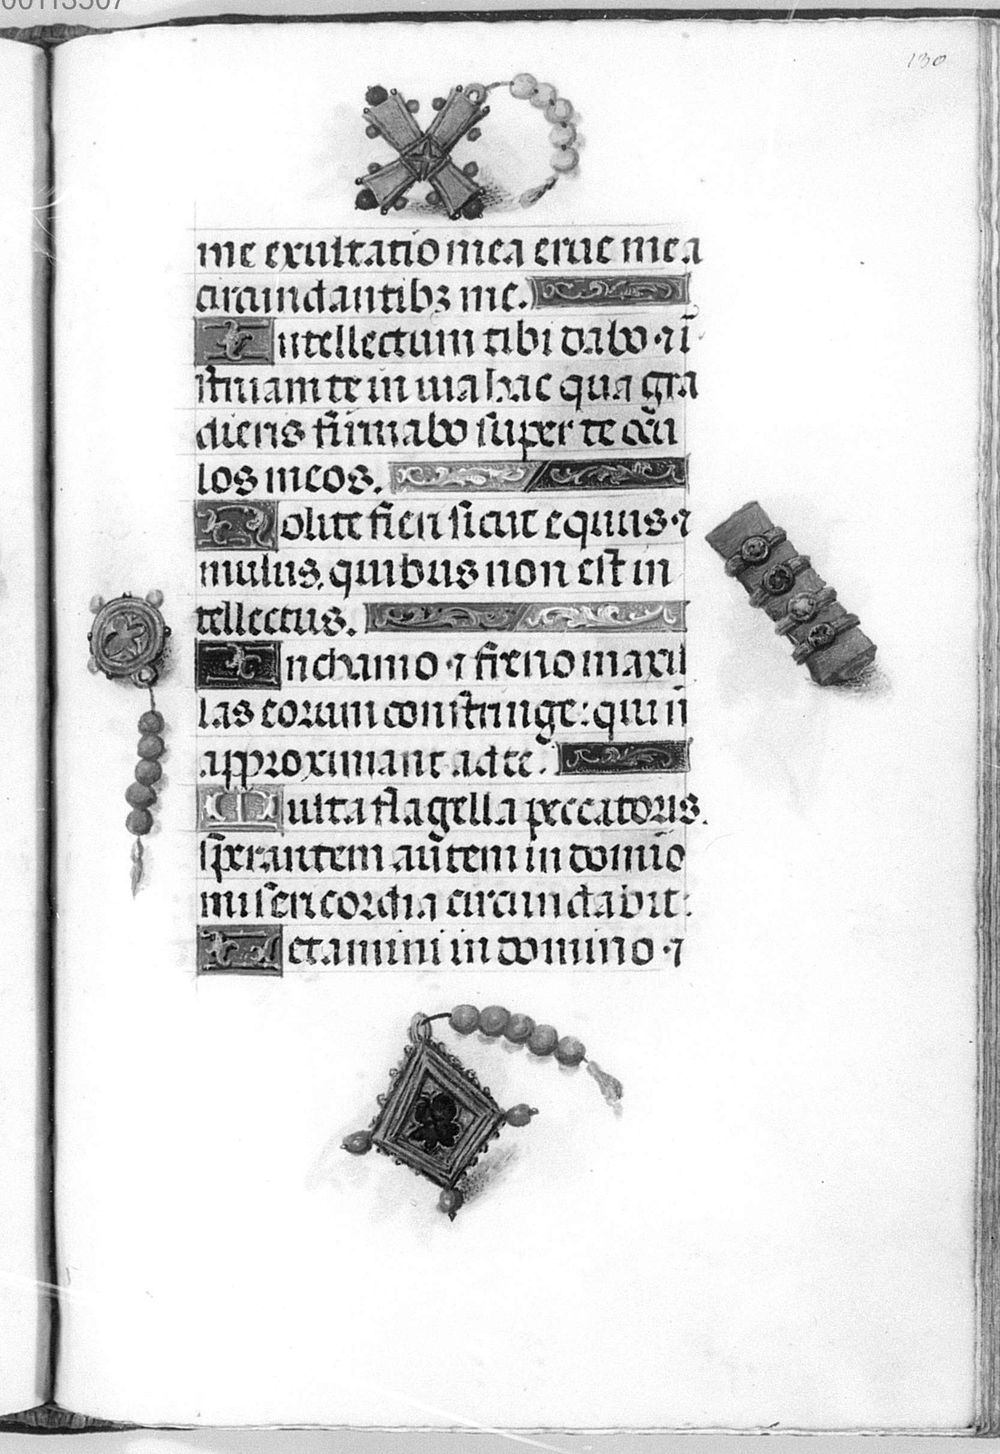 00113507
130
me exultatio mea erue me a
circundantibꝫ me.
Intellectum tibi dabo ⁊ ī
struam te in uia hac qua gra
dieris firmabo super te ocu
los meos.
Nolite fieri sicut equus ⁊
mulus, quibus non est in
tellectus.
In chamo ⁊ freno maxil
las eorum constringe: qui nō
approximant ad te.
Multa flagella peccatoris.
sperantem autem in domino
misericordia circundabit:
Letamini in domino ⁊